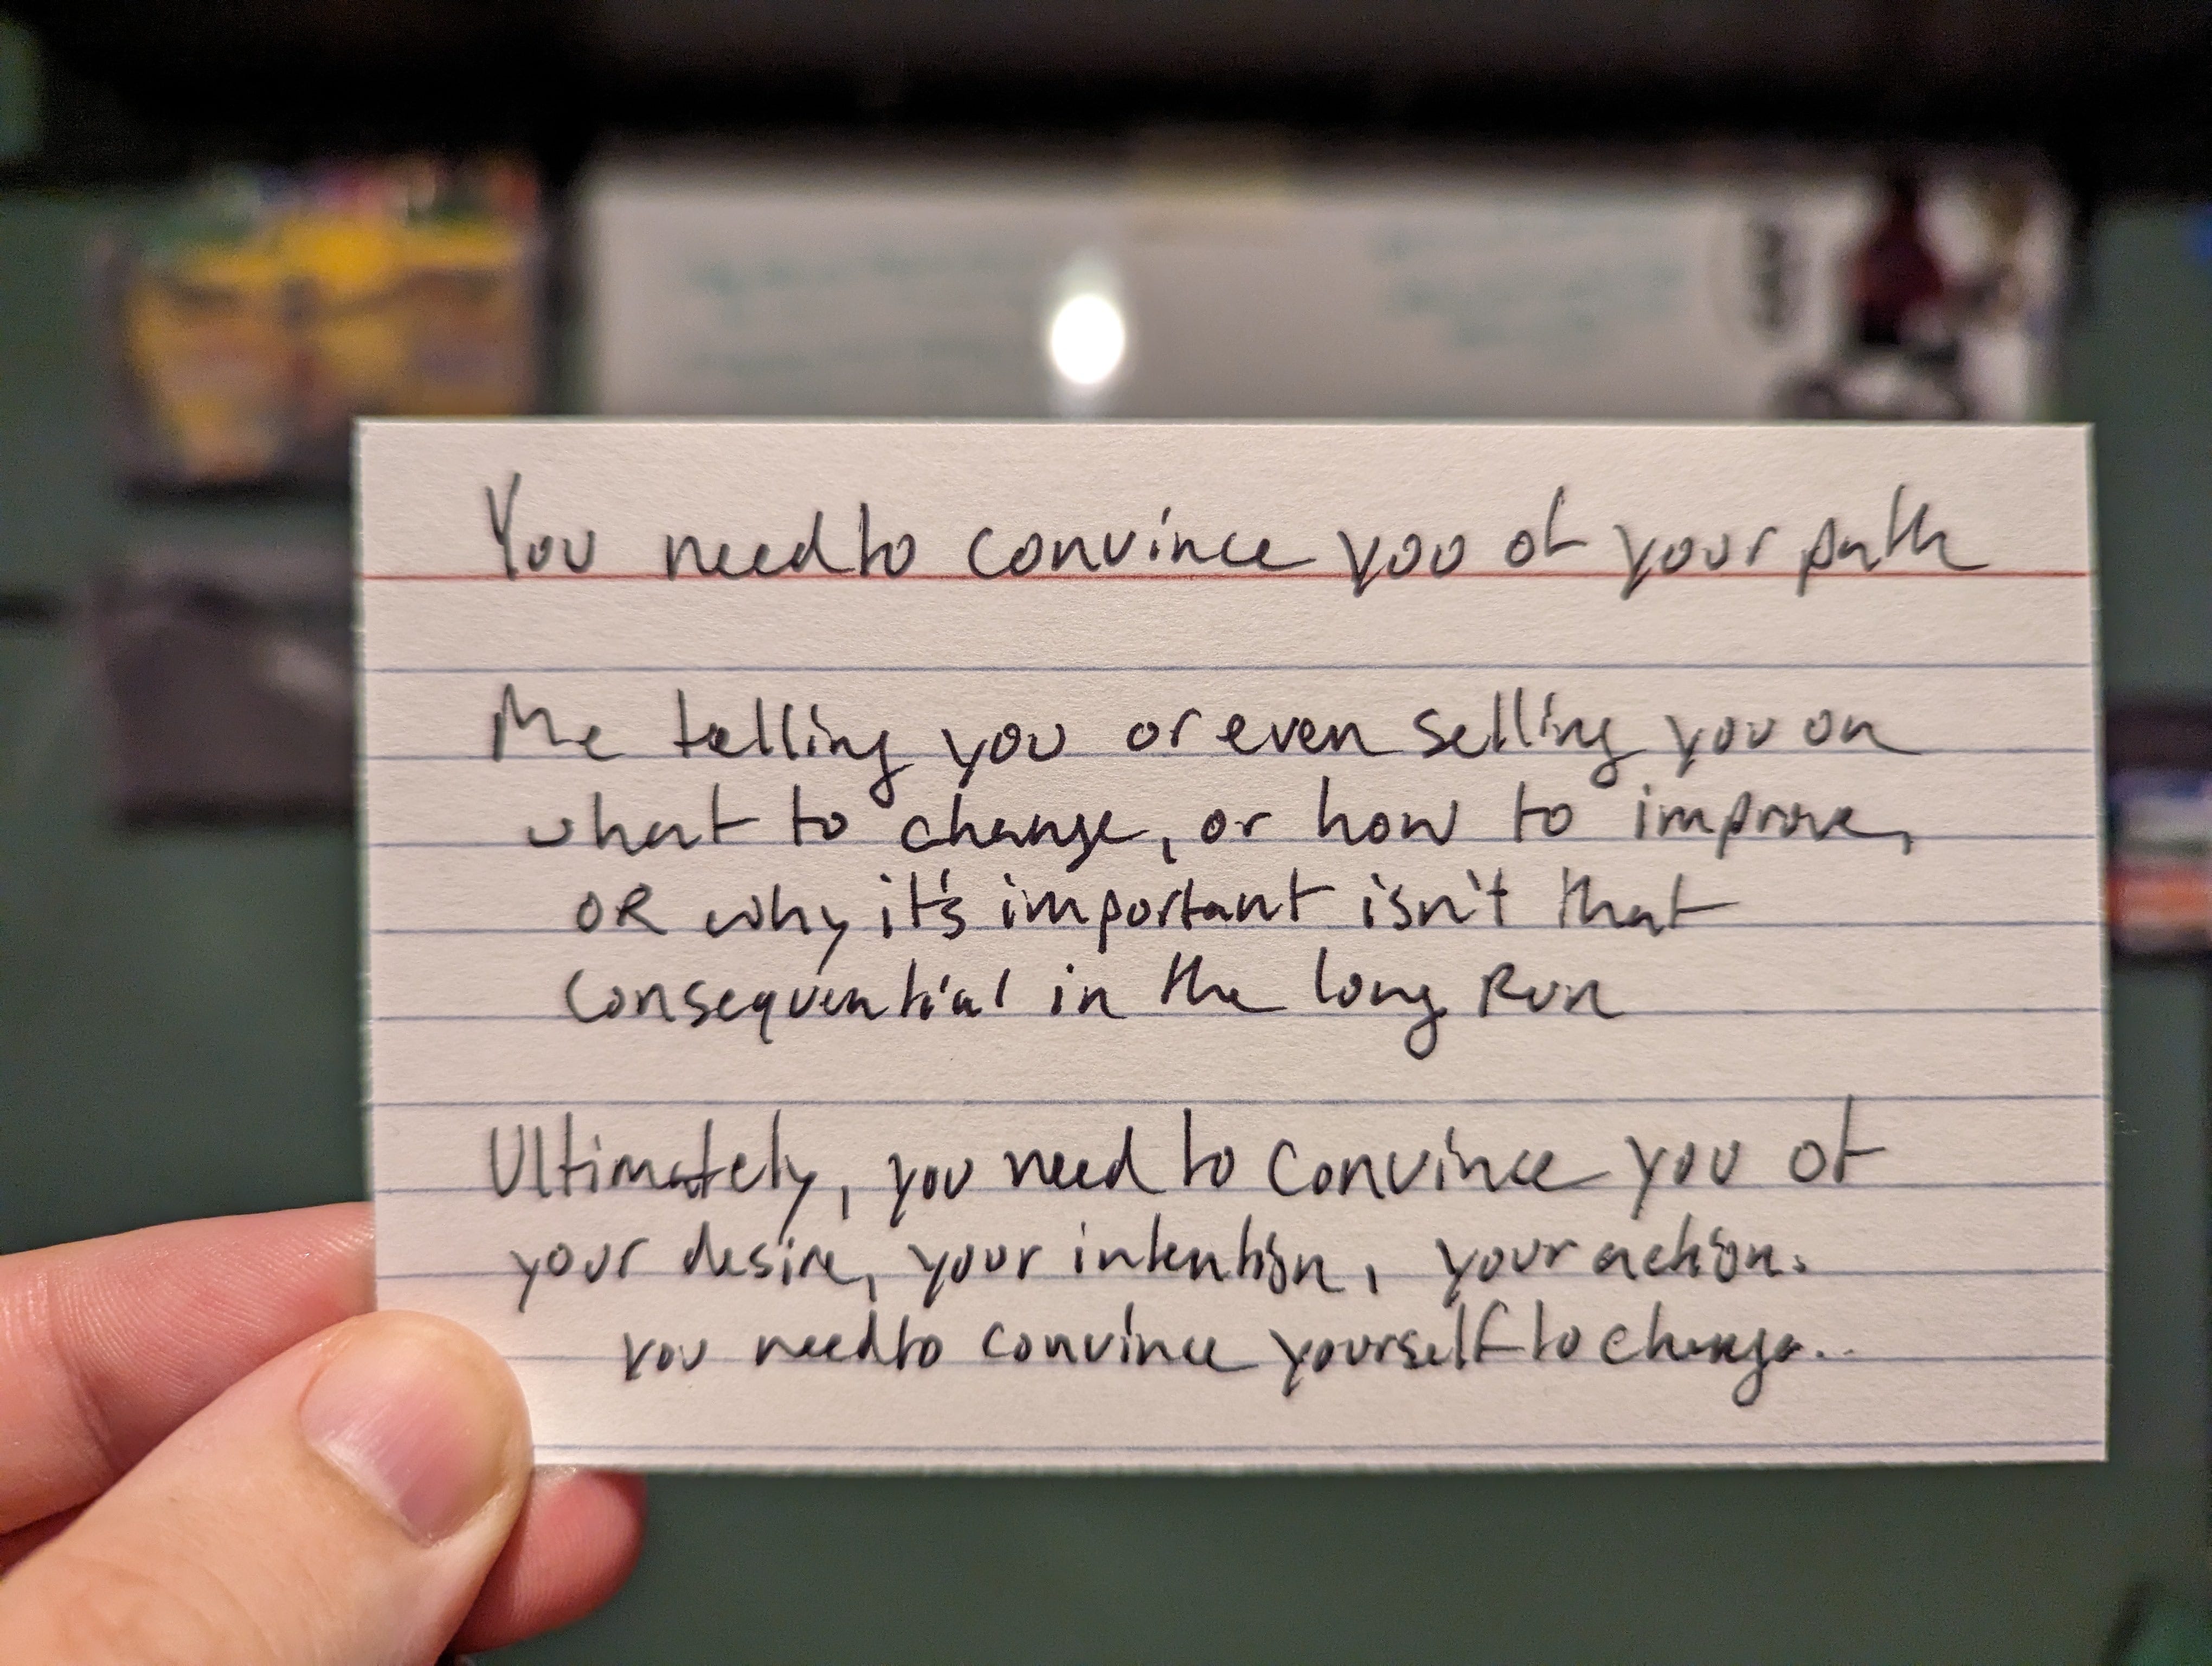 You need to convince you of your path
Me telling you or even selling you on
what to change, or how to improve,
OR why it's important isn't that
consequential in the long Run
Ultimately, you need to convince you of
your desire, your intention, your action.
you need to convince yourself to change..